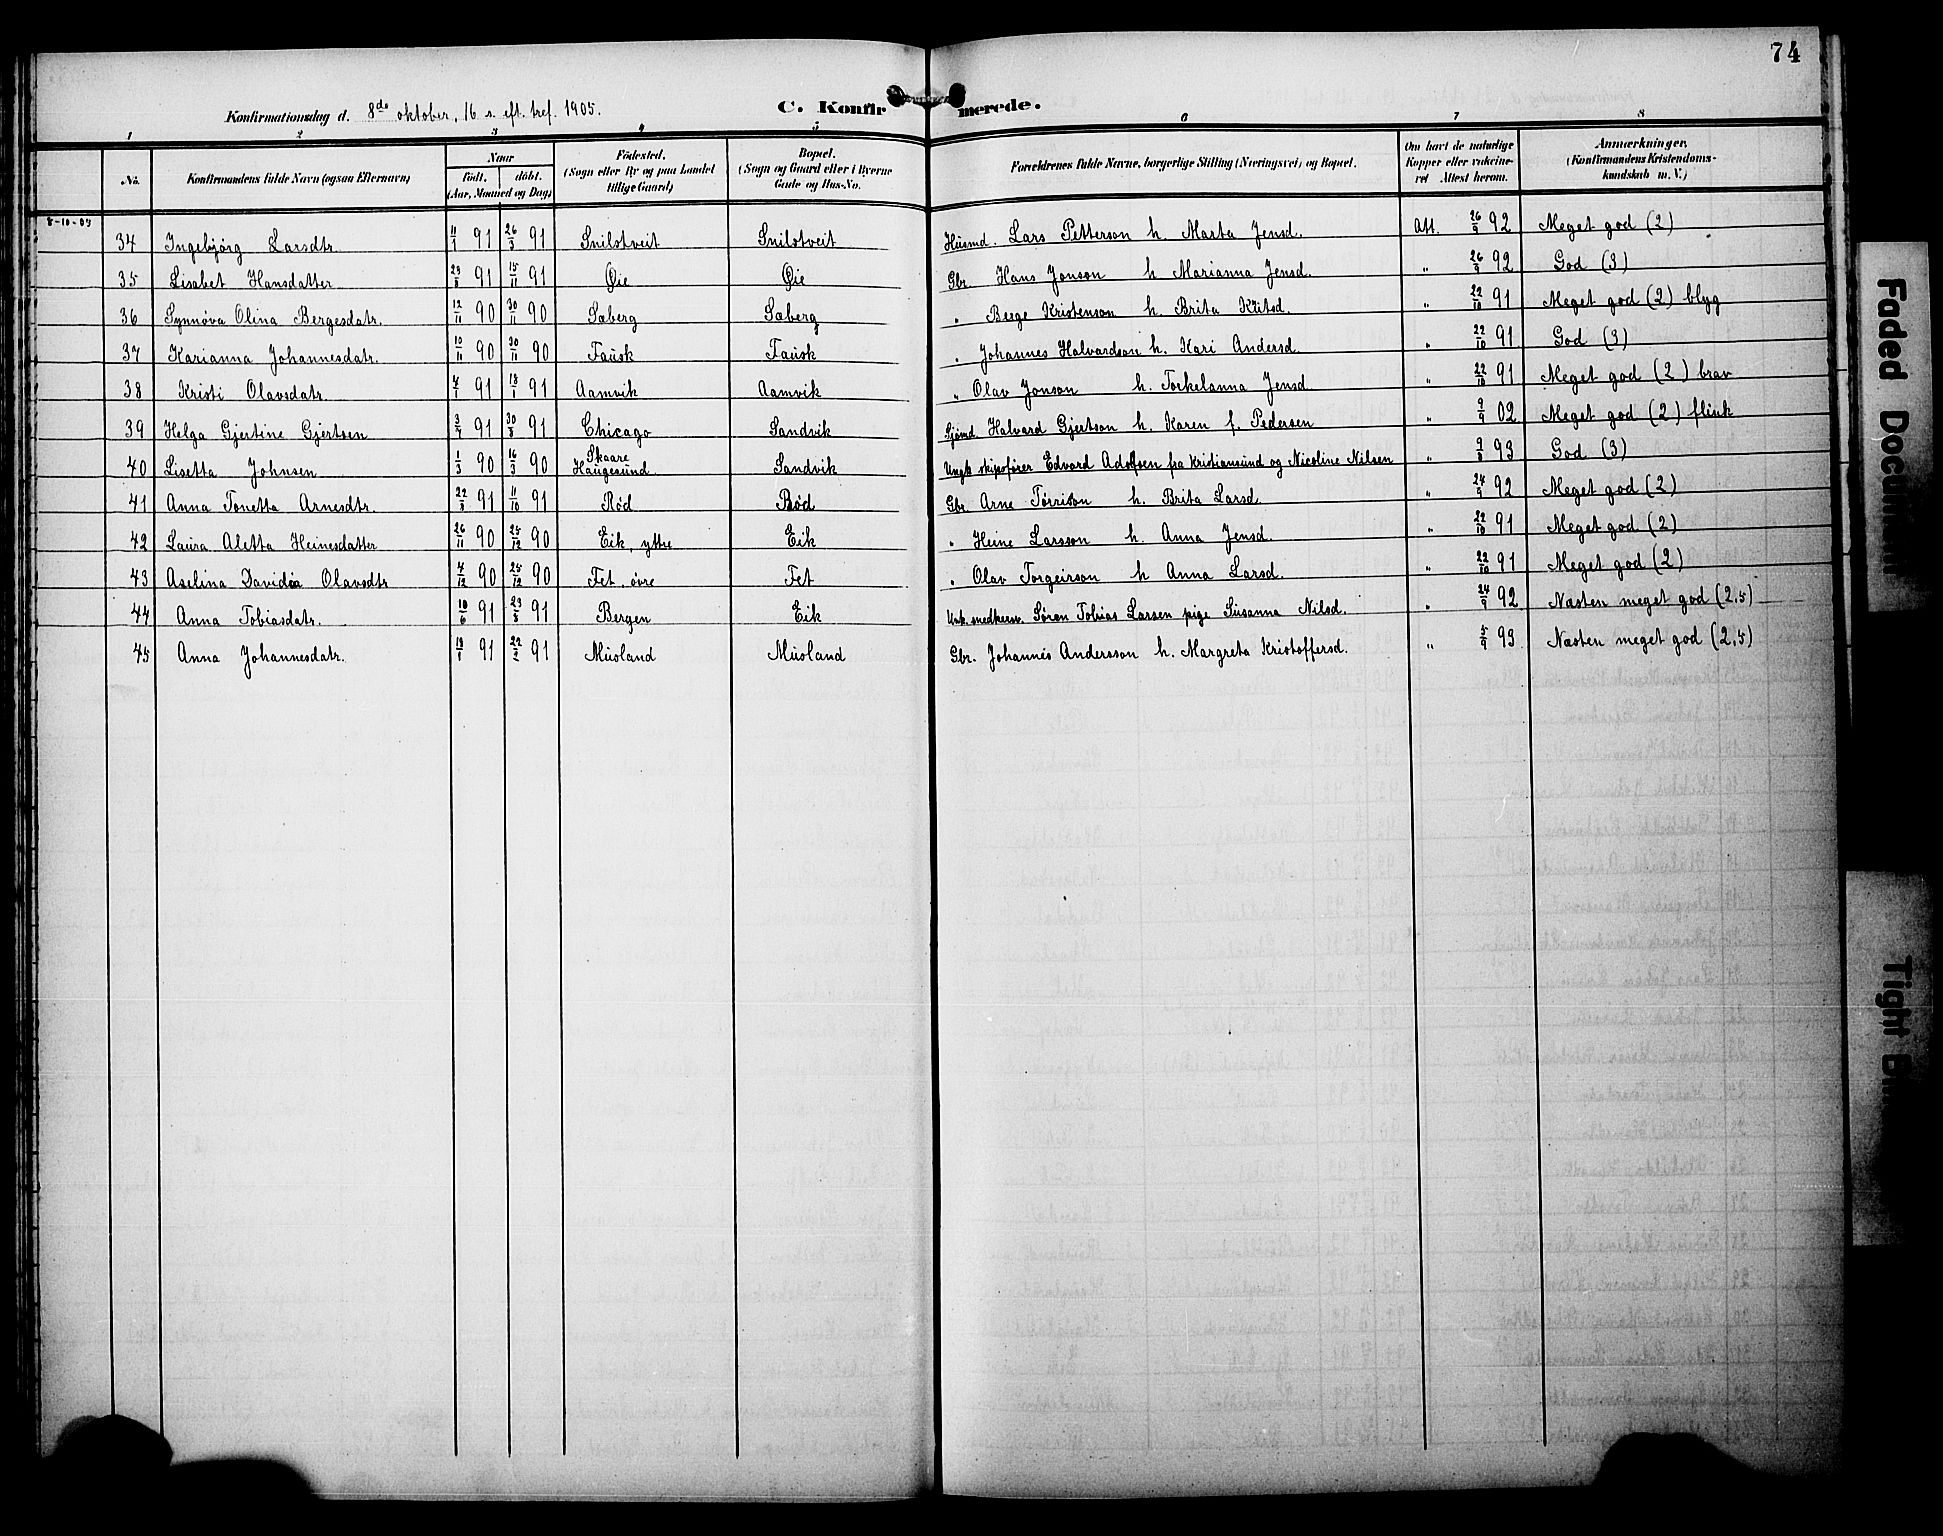 74
Konfirmationsdag d. 8de oktober, 16 s. eft. tref. 1905.
C. Konfirmerede.
1 2 3 4 5 6 7 8
No. Konfirmandens fulde Navn (ogsaa Efternavn) Naar Født. døbt. (Aar, Maaned og Dag) Fødested. (Sogn eller By og paa Landet tillige Gaard) Bopæl. (Sogn og Gaard eller i Byerne Gade og Hus-No. Forældrenes fulde Navne, borgerlige Stilling (Næringsvei) og Bopæl. Om havt de naturlige Kopper eller vakcineret Attest herom. Anmærkninger, (Konfirmandens Kristendomskundskab m. V.)
34 Ingebjörg Larsdtr. 91 26/3 91 Snilstveit Snilstveit Husmd. Lars Petterson h. Marta Jensd. Att. 26/9 92 Meget god (2)
35 Lisabet Hansdatter 91 15/11 91 Øie Øie Gbr. Hans Jonson h. Marianna Jensd. " 26/9 92 God (3)
36 Synnöva Olina Bergesdatr. 12/11 90 30/11 90 Sæberg Sæberg " Berge Kristenson h. Brita Knutsd. " 22/10 91 Meget god (2) blyg
37 Karianna Johannesdatr. 10/11 90 30/11 90 Fausk Fausk " Johannes Halvardson h. Kari Andersd. " 22/10 91 God (3)
38 Kristi Olavsdatr. 91 18/1 91 Aamvik Aamvik " Olav Jonson h. Torkelanna Jensd. " 22/10 91 Meget god (2) brav
39 Helga Gjertine Gjertsen 91 91 Chicago Sandvik Sjömd. Halvard Gjertson h. Karen f. Pedersen " 9/9 02 Meget god (2) flink
40 Lisetta Johnsen 1/3 90 16/3 90 Skaare Haugesund Sandvik Ungk. skipsförer Edvard Adolfsen fra Kristiansund og Nicoline Nilsen " 93 God (3)
41 Anna Tonetta Arnesdtr. 91 11/10 91 Röd Röd Gbr. Arne Törrison h. Brita Larsd. " 24/9 92 Meget god (2)
42 Laura Aletta Heinesdatter 26/11 90 25/12 90 Eik, ytre Eik " Heine Larsson h. Anna Jensd. " 22/10 91 Meget god (2)
43 Aselina Davida Olavsdtr 90 25/12 90 Fet, övre Fet " Olav Torgeirson h Anna Larsd. " 22/10 91 Meget god (2)
44 Anna Tobiasdatr. 91 91 Bergen Eik Unk. Sören Tobias Larsen pige Susanna Nilsd. " 24/9 92 Næsten meget god (2,5)
45 Anna Johannesdatr. 91 22/2 91 Musland Musland Gbr. Johannes Andersson h. Margreta Kristoffersd. " 93 Næsten meget god (2,5)
Faded Document
Tight